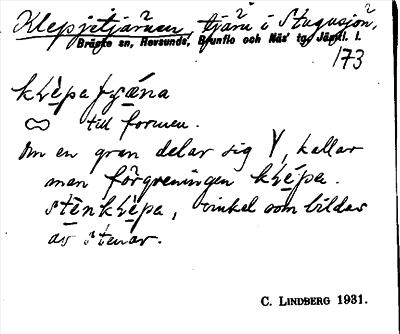 Klepjetjärnen, tjärn i Stugusjön,
Bräcke sn, Revsunds, Brunflo och Näs' tg, Jämtl. l.
173
till formen.
Om en gran delar sig Y, kallar
man förgreningen klè̱pa.
stēnklè̱pa, vinkel som bildas
av stenar.
C. LINDBERG 1931.